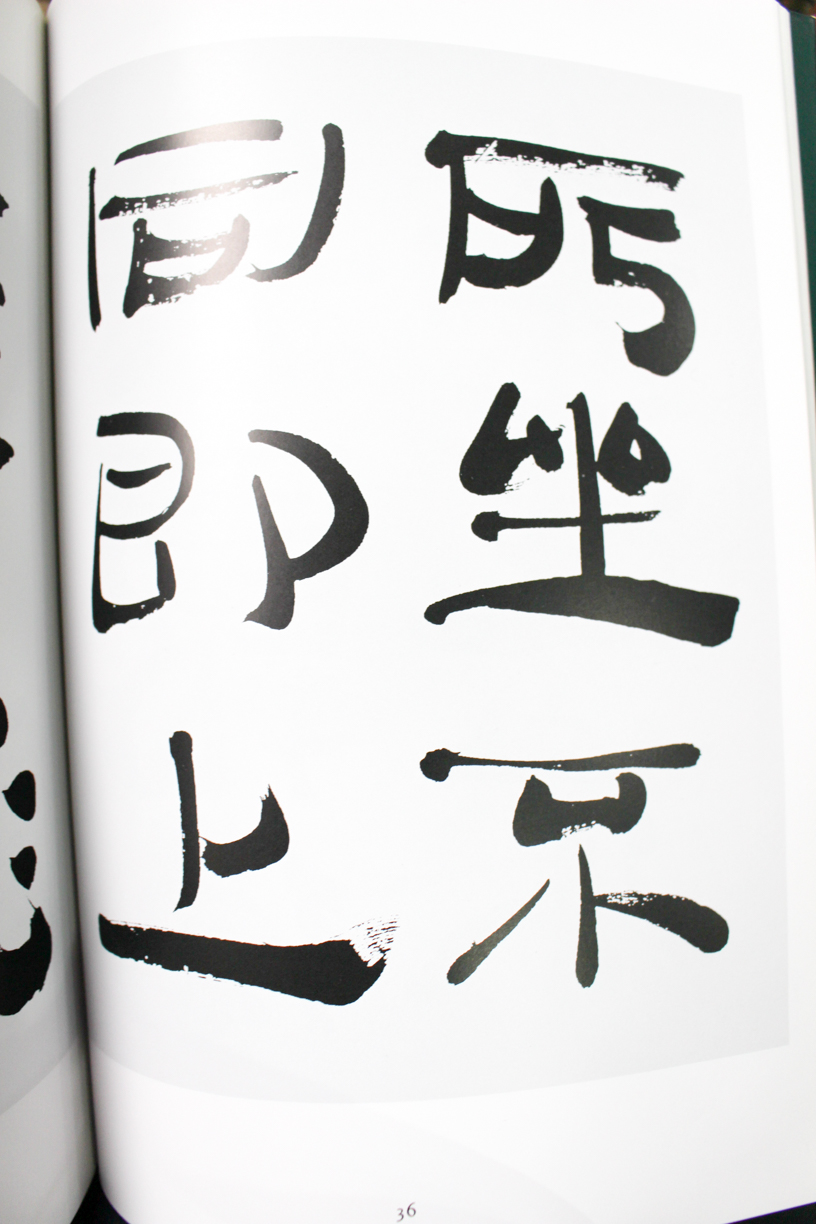 所坐京
同即上
36